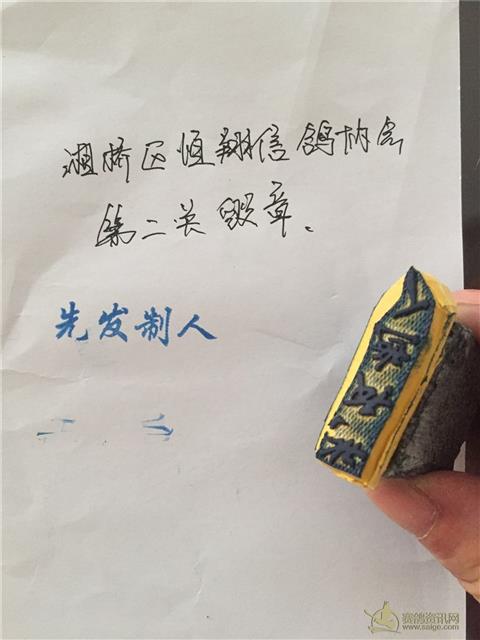 湘桥区恒翔信鸽协会
第二关毁章。
先发制人
赛鸽资讯网
www.saige.com